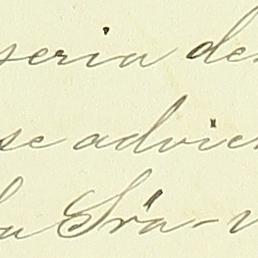 seria de
se advier
la Sra-v